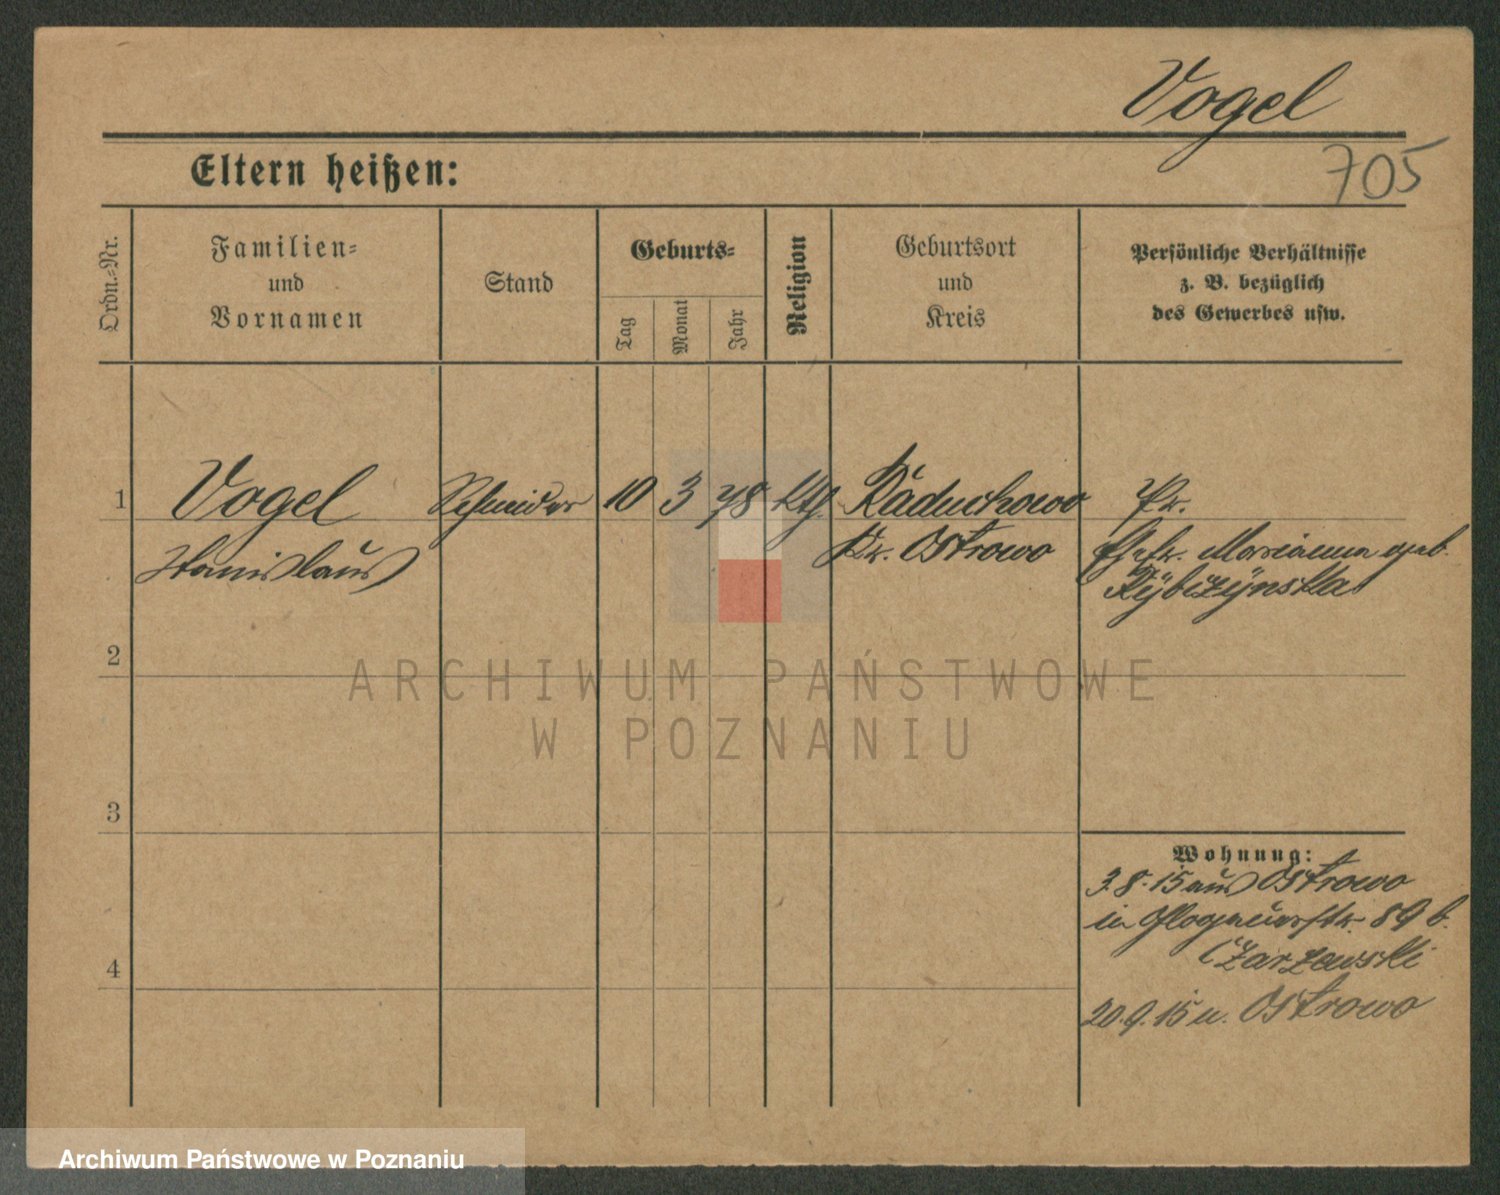 Vogel
705
Eltern heißen:
Ordn.-Nr.
Familien-
und
Vornamen
Stand
Geburts-
Tag
Monat
Jahr
Religion
Geburtsort
und
Kreis
Persönliche Verhältnisse
z. B. bezüglich
des Gewerbes usw.
1
Vogel Schneider 10 3 78 kth. Raduchowo Pr.
Stanislaus Kr. Ostrowo Ehefr. Marianna geb.
2
3
Wohnung:
3.8.15 aus Ostrowo
in Glogauerstr. 89 b.
Czarzewski
4
20.9.15 n. Ostrowo
ARCHIWUM PAŃSTWOWE
W POZNANIU
Archiwum Państwowe w Poznaniu